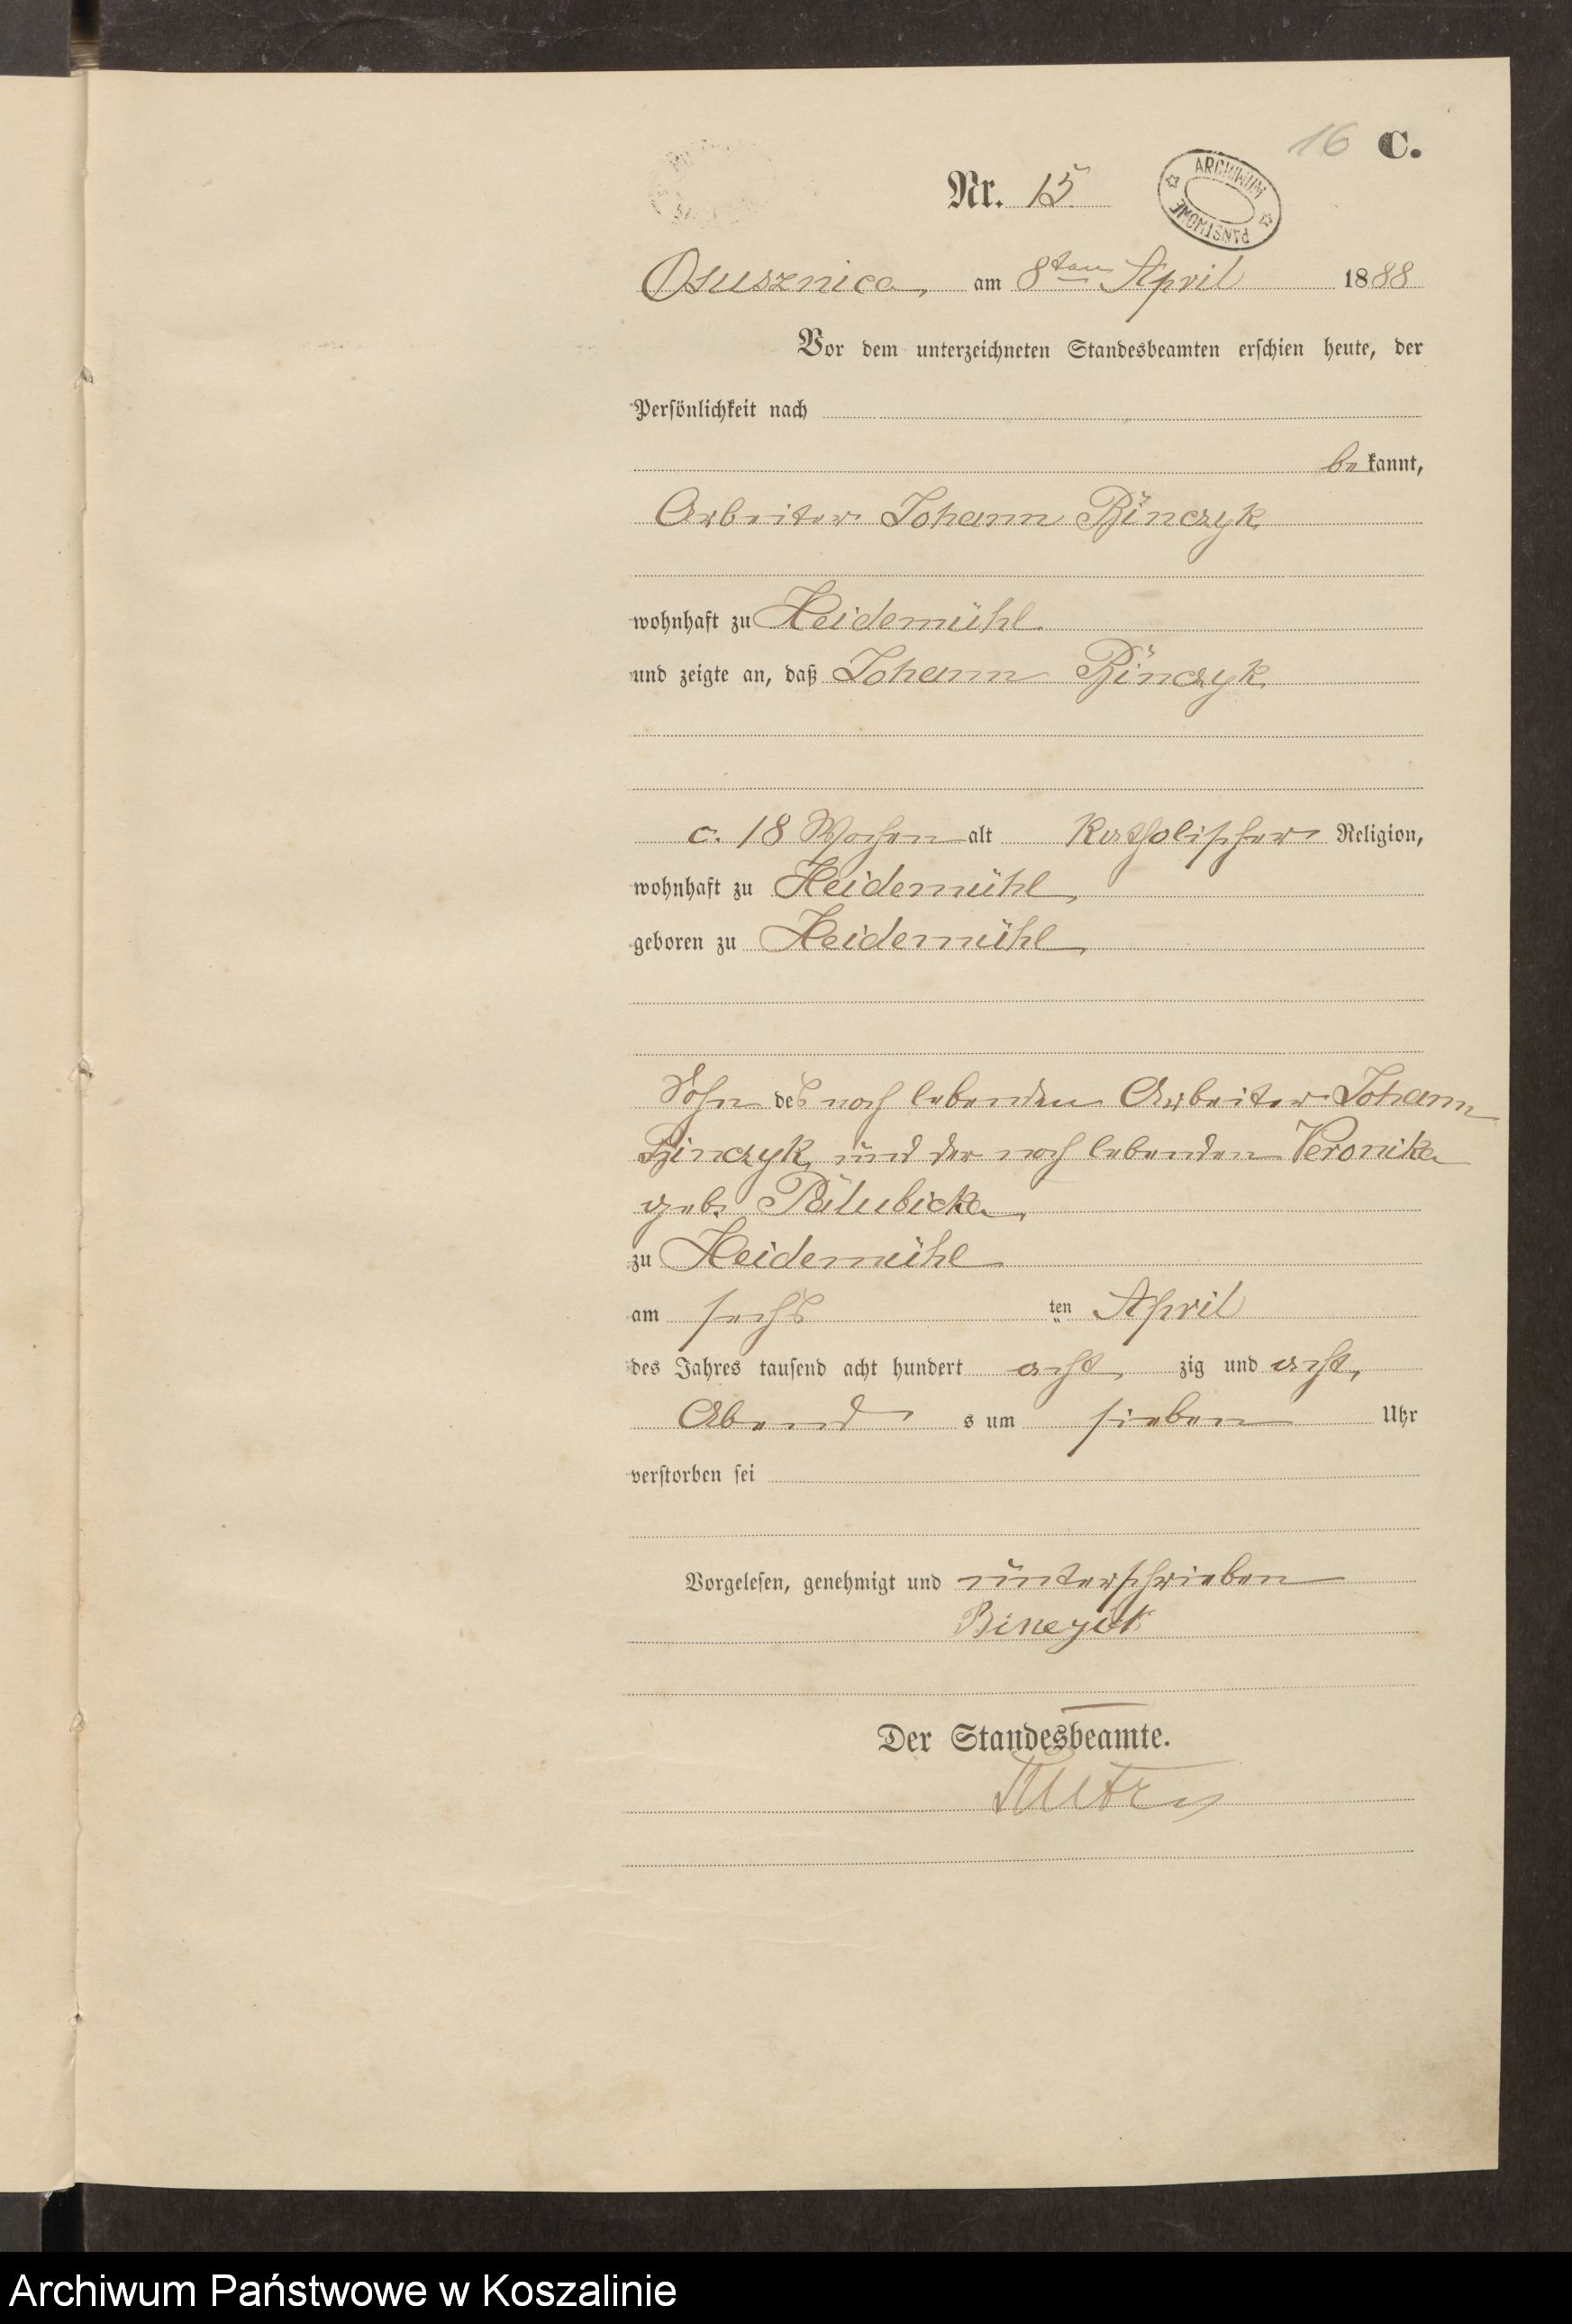 16 C.
Nr. 15
ARCHIWUM PAŃSTWOWE
Osusznica, am 8ten April 1888
Vor dem unterzeichneten Standesbeamten erschien heute, der
Persönlichkeit nach
bekannt,
Arbeiter Johann Binczyk
wohnhaft zu Heidemühl
und zeigte an, daß Johann Binczyk
c. 18 Wochen alt katholischer Religion,
wohnhaft zu Heidemühl,
geboren zu Heidemühl,
Sohn des noch lebenden Arbeiter Johann
Binczyk und der noch lebenden Veronika
geb. Palubicka,
zu Heidemühl
am sechs ten April
des Jahres tausend acht hundert acht zig und acht,
Abend s um sieben Uhr
verstorben sei
Vorgelesen, genehmigt und unterschrieben
Der Standesbeamte.
Archiwum Państwowe w Koszalinie